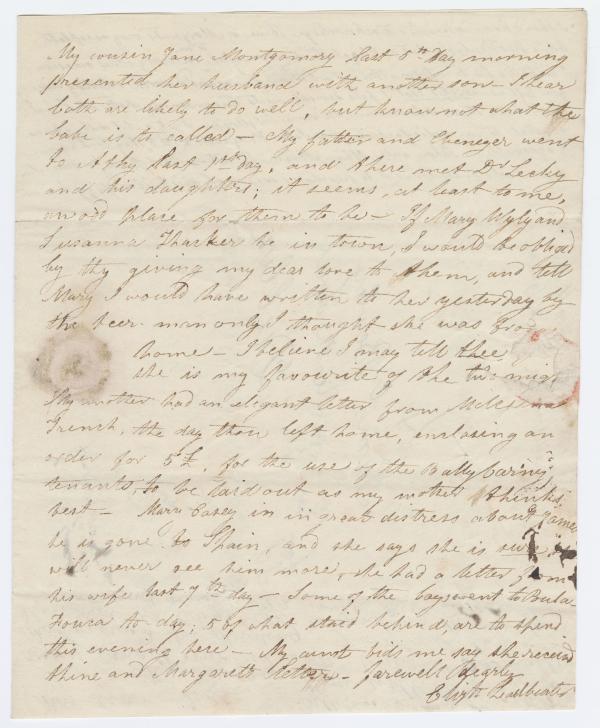 My cousin Jane Montgomory last 5th Day morning
presented her husband with another son - I hear
both are likely to do well, but know not what the
babe is to called - My father and Ebenezer went
to Athy last 1st day, and there met Dr Lecky
and his daughters; it seems, at least to me,
an odd place for them to be - If Mary Wyly and
Susanna Tharker be in town, I would be obliged
by thy giving my dear love to them, and tell
Mary I would have written to her yesterday by
the beer-man only I thought she was from
home - I believe I may tell thee
she is my favourite of the two
Thy mother had an elegant letter from Melesina
Trench, the day thou left home, enclosing an
order for 5£, for the use of the Ballybarney
tenants, to be laid out as my mother thinks
best - Mary Casey in in great distress about James
he is gone to Spain, and she says she is sure
will never see him more, she had a letter from
his wife last 7th day - Some of the boys went to
to day; 5 of what staid behind, are to spend
this evening here - My aunt bids me say she received
thine and Margarets letter - farewell Dearly
Elizth Leadbeater